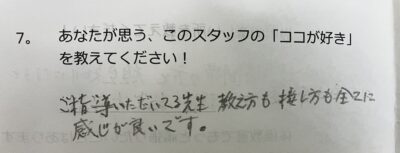 7。 あなたが思う、このスタッフの「ココが好き」
を教えてください！
ご指導いただいてる先生 教え方も 接し方も全てに
感じが良いです。